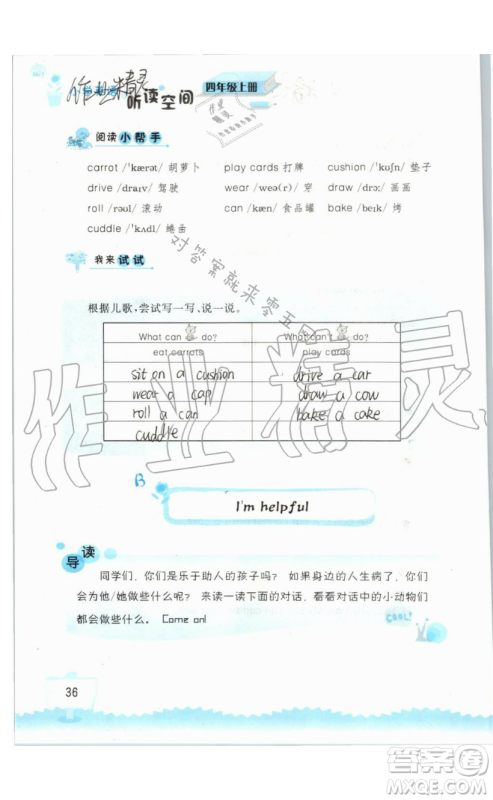 作业精灵
听读空间 四年级上册
阅读小帮手
carrot /ˈkærət/ 胡萝卜 play cards 打牌 cushion /ˈkʊʃn/ 垫子
drive /draɪv/ 驾驶 wear /weə(r)/ 穿 draw /drɔː/ 画画
roll /rəʊl/ 滚动 can /kæn/ 食品罐 bake /beɪk/ 烤
cuddle /ˈkʌdl/ 蜷曲
我来试试
对答案就来零五
根据儿歌,尝试写一写,说一说。
What can do? What can't do?
eat carrots play cards
sit on a cushion drive a car
wear a cap draw a cow
roll a can bake a cake
cuddle
作业精灵
B
I'm helpful
导读
同学们,你们是乐于助人的孩子吗? 如果身边的人生病了,你们
会为他/她做些什么呢? 来读一读下面的对话,看看对话中的小动物们
都会做些什么。 Come on!
COOL!
36
答案圈
MXQE.COM